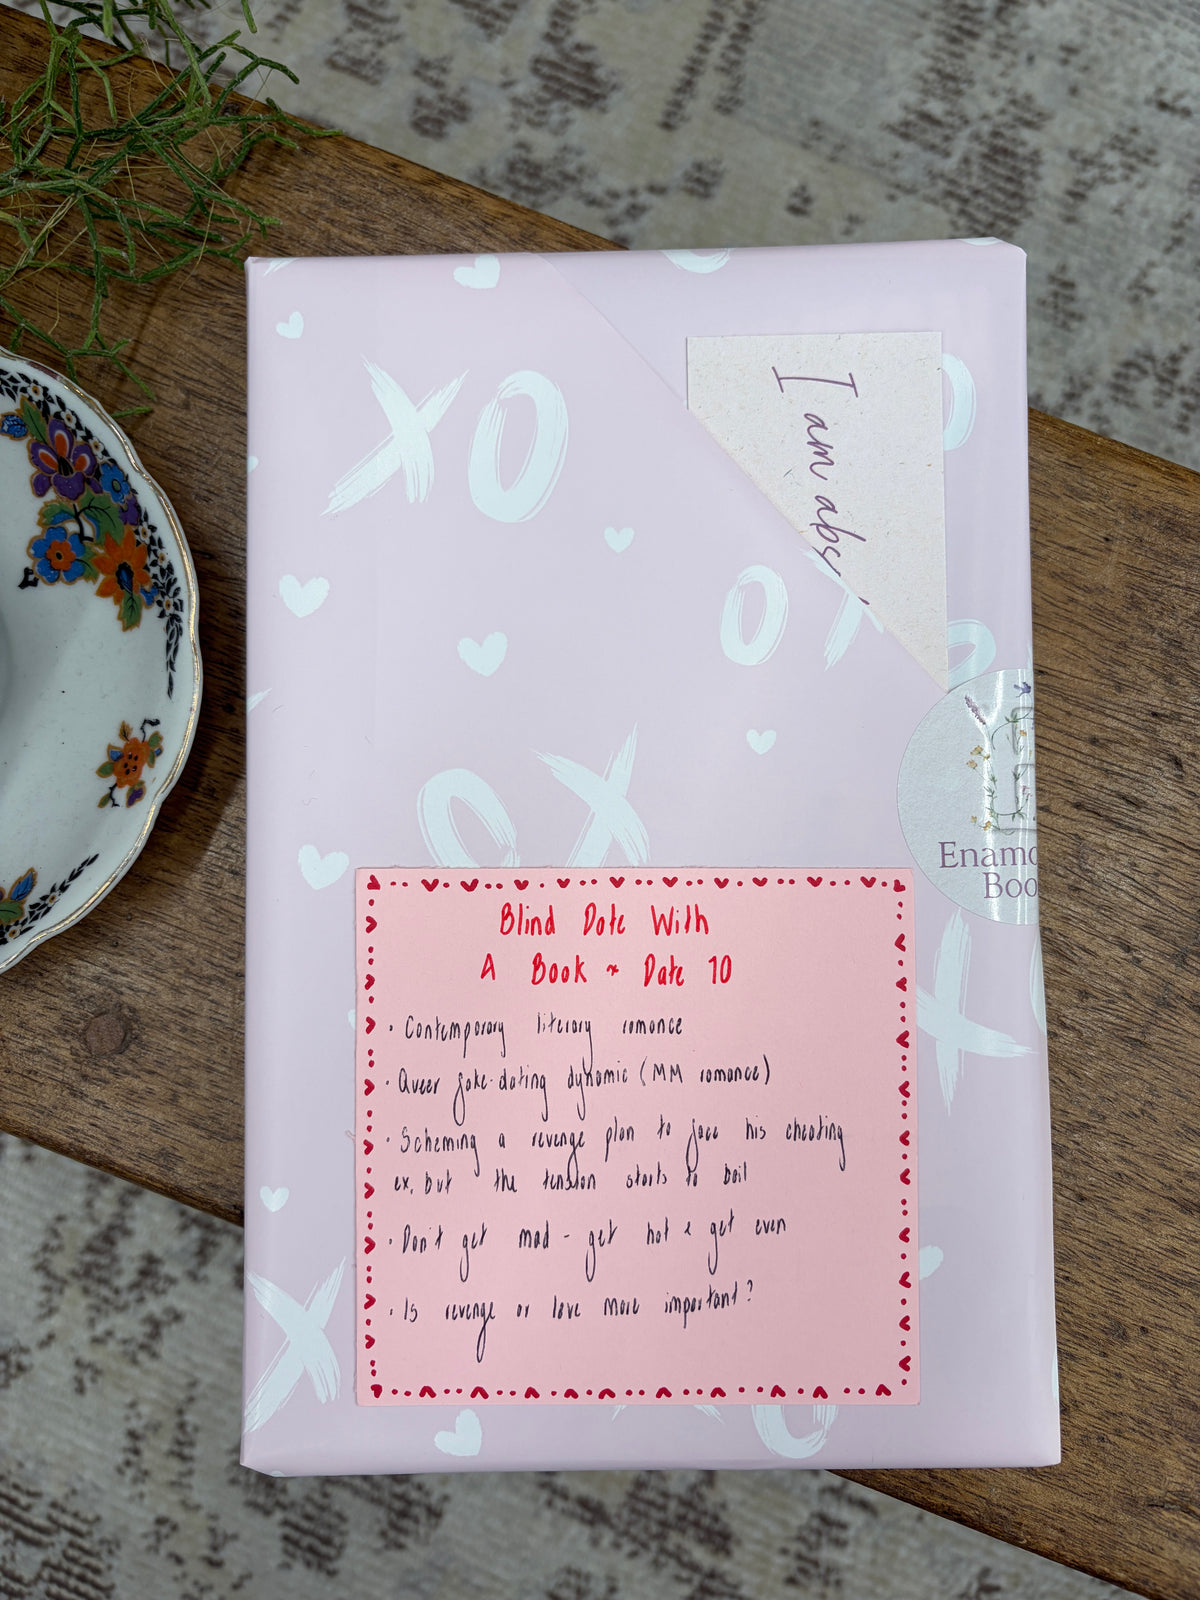 XO
I am abs
OX
OX
Enamo
Boo
Blind Date With
A Book ~ Date 10
· Contemporary literary romance
· Queer fake-dating dynamic (MM romance)
· Scheming a revenge plan to face his cheating
ex, but the tension starts to boil
· Don't get mad - get hot & get even
· Is revenge or love more important?
X
X
O